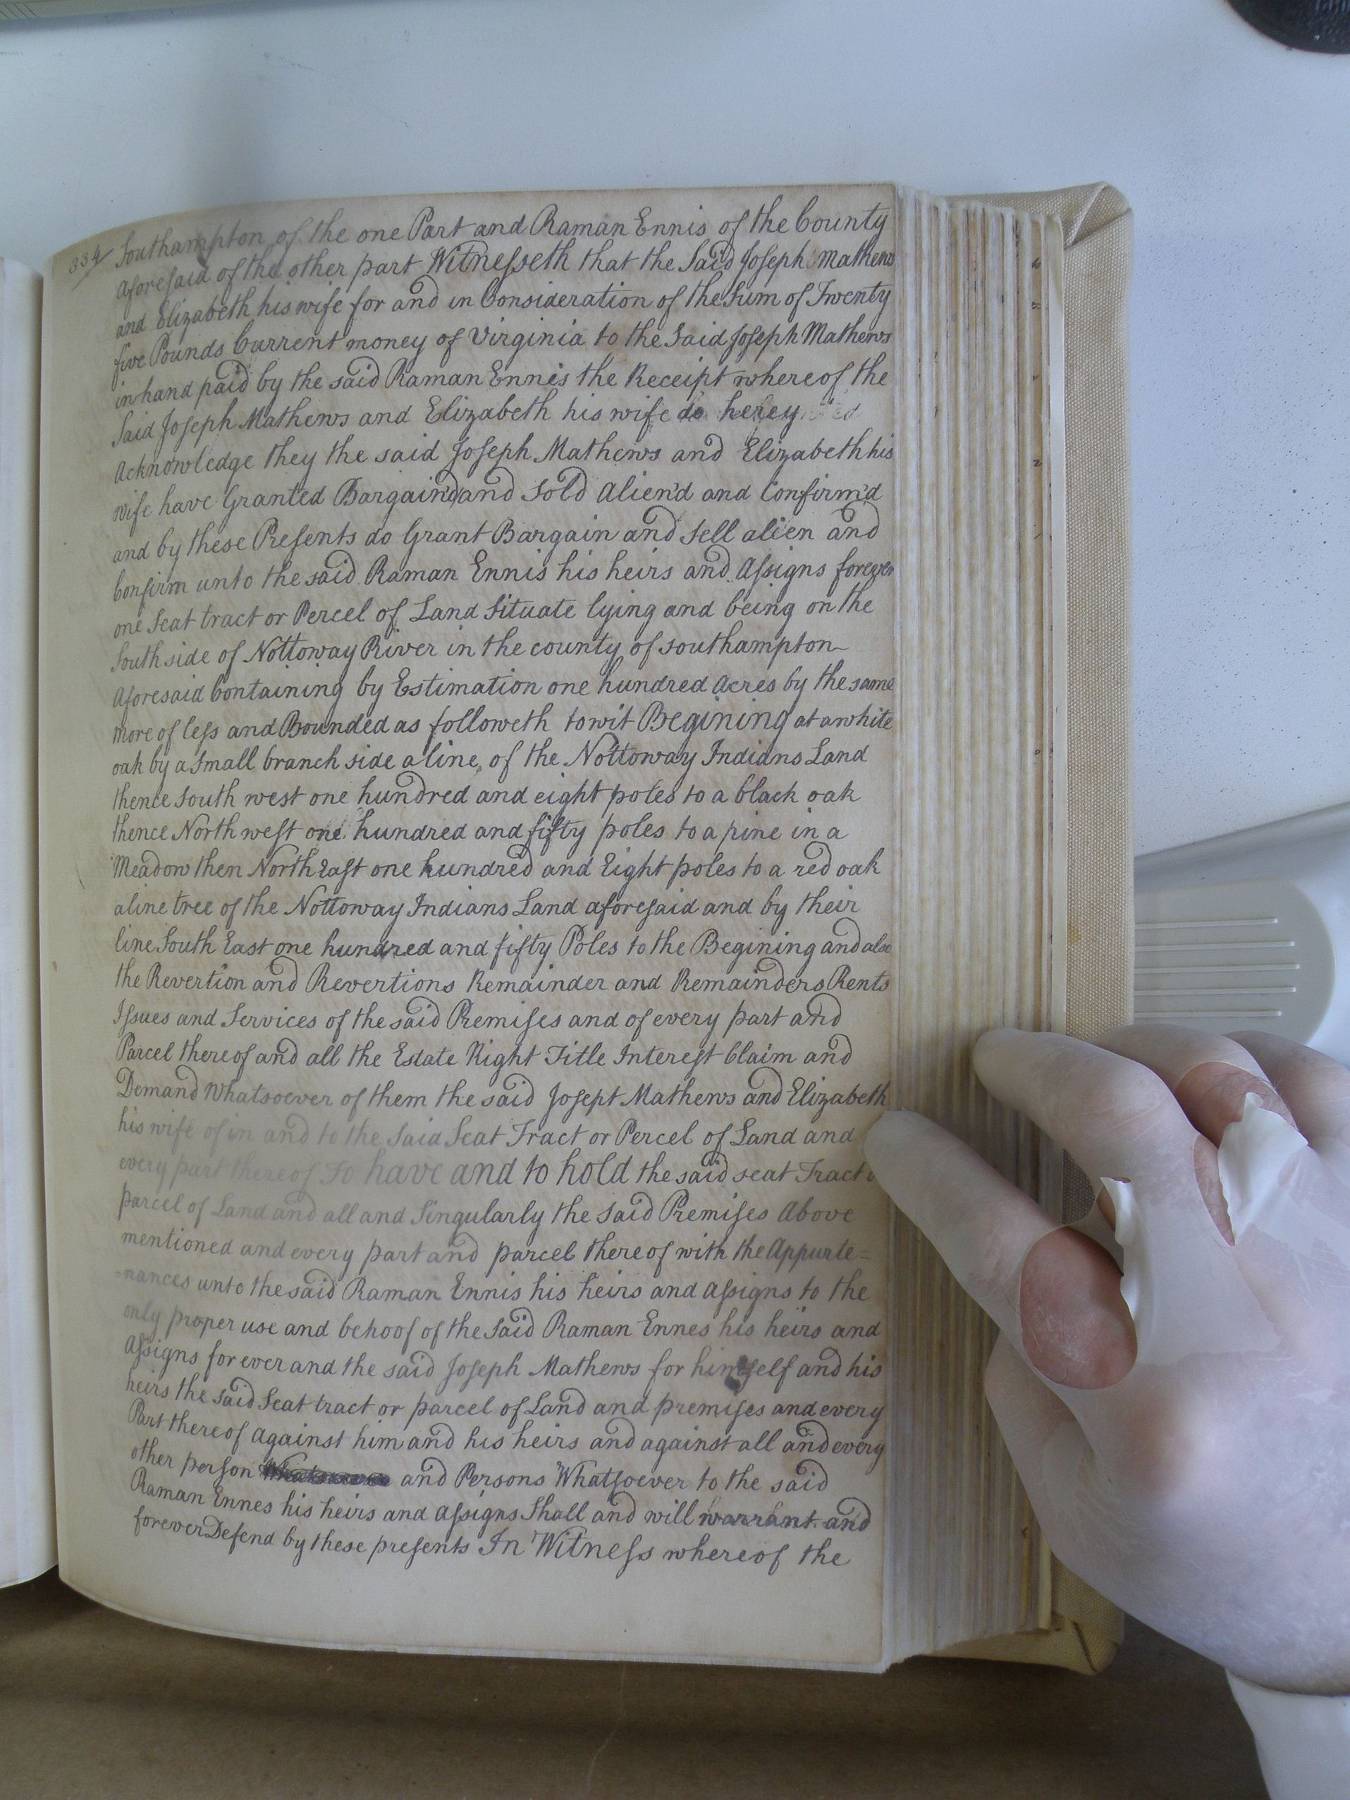 334
Southampton of the one Part and Raman Ennis of the County
aforesaid of the other part Witnesseth that the Said Joseph Mathews
and Elizabeth his wife for and in Consideration of the Sum of Twenty
five Pounds Current money of Virginia to the Said Joseph Mathews
in hand paid by the said Raman Ennis the Receipt whereof the
Said Joseph Mathews and Elizabeth his wife do herey
Acknowledge they the said Joseph Mathews and Elizabeth his
wife have Granted Bargaind and Sold Alien'd and Confirm'd
and by these Presents do Grant Bargain and Sell alien and
Confirm unto the said Raman Ennis his heirs and Assigns forever
one Seat tract or Percel of Land Situate lying and being on the
South side of Nottoway River in the county of Southampton
Aforesaid Containing by Estimation one hundred Acres by the same
more of less and Bounded as followeth towit Begining at a white
oak by a Small branch side a line, of the Nottoway Indians Land
thence South west one hundred and eight poles to a black oak
thence North west one hundred and fifty poles to a pine in a
Meadow then North East one hundred and Eight poles to a red oak
a line tree of the Nottoway Indians Land aforesaid and by their
line South East one hundred and fifty Poles to the Begining and also
the Revertion and Revertions Remainder and Remainders Rents
Issues and Services of the said Premises and of every part and
Parcel thereof and all the Estate Right Title Interest Claim and
Demand Whatsoever of them the said Josept Mathews and Elizabeth
his wife of in and to the Said Seat Tract or Percel of Land and
every part thereof To have and to hold the said seat Tract
parcel of Land and all and Singularly the Said Premises Above
mentioned and every part and parcel thereof with the Appurte=
-nances unto the said Raman Ennis his heirs and assigns to the
only proper use and behoof of the Said Raman Ennes his heirs and
Assigns for ever and the said Joseph Mathews for himself and his
heirs the said Seat tract or parcel of Land and premises and every
Part thereof against him and his heirs and against all and every
other person Whatsoever and Persons Whatsoever to the said
Raman Ennes his heirs and assigns Shall and will warrant and
forever Defend by these presents In Witness whereof the